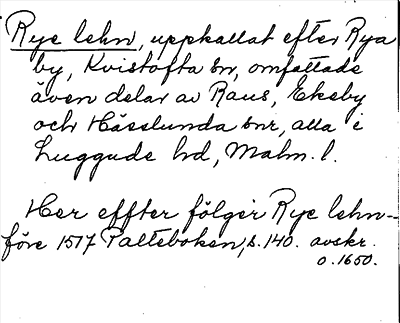 Rye lehn, uppkallat efter Rya
by, Kvistofta sn, omfattade
även delar av Raus, Ekeby
och Hässlunda snr, alla i
Luggude hd, Malm. l.
Her effter fölger Rye lehn-
före 1517 Palteboken, s. 140. avskr.
o. 1650.